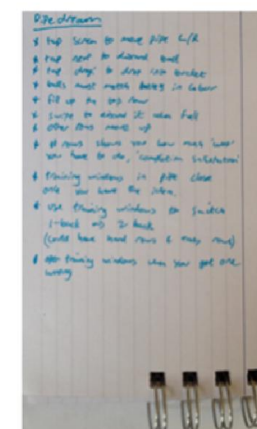 Pipe dream
* tap screen to move pipe L/R
* tap next to discard ball
* tap 'drop' to drop into bucket
* balls must match balls in colour
* fill up the top row
* swipe to discard it when full
* other rows move up
* # rows shows you how much 'work'
you have to do, 'completion satisfaction'
* training windows in pipe close
once you have the idea.
* use training windows to switch
1-back to 2-back
(could have hard rows & easy rows)
* training windows when you get one
wrong